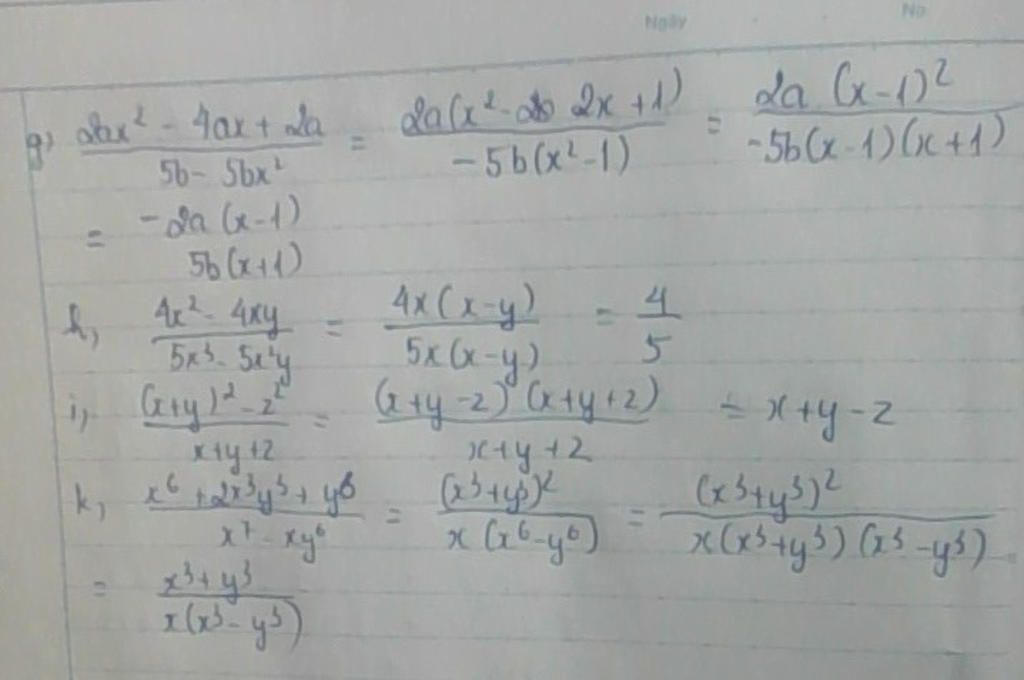 Ngày No
g, (2ax² - 4ax + 2a)/(5b - 5bx²) = 2a(x² - 2x + 1)/(-5b(x² - 1)) = 2a (x - 1)²/(-5b(x - 1)(x + 1))
= -2a (x - 1)/5b(x + 1)
h, (4x² - 4xy)/(5x³ - 5x²y) = 4x(x - y)/5x(x - y) = 4/5
i, ((x+y)² - z²)/(x+y+z) = (x+y-z)(x+y+z)/(x+y+z) = x+y-z
k, (x⁶ + 2x³y³ + y⁶)/(x⁷ - xy⁶) = (x³+y³)²/x(x⁶-y⁶) = (x³+y³)²/x(x³+y³)(x³-y³)
= (x³+y³)/x(x³-y³)